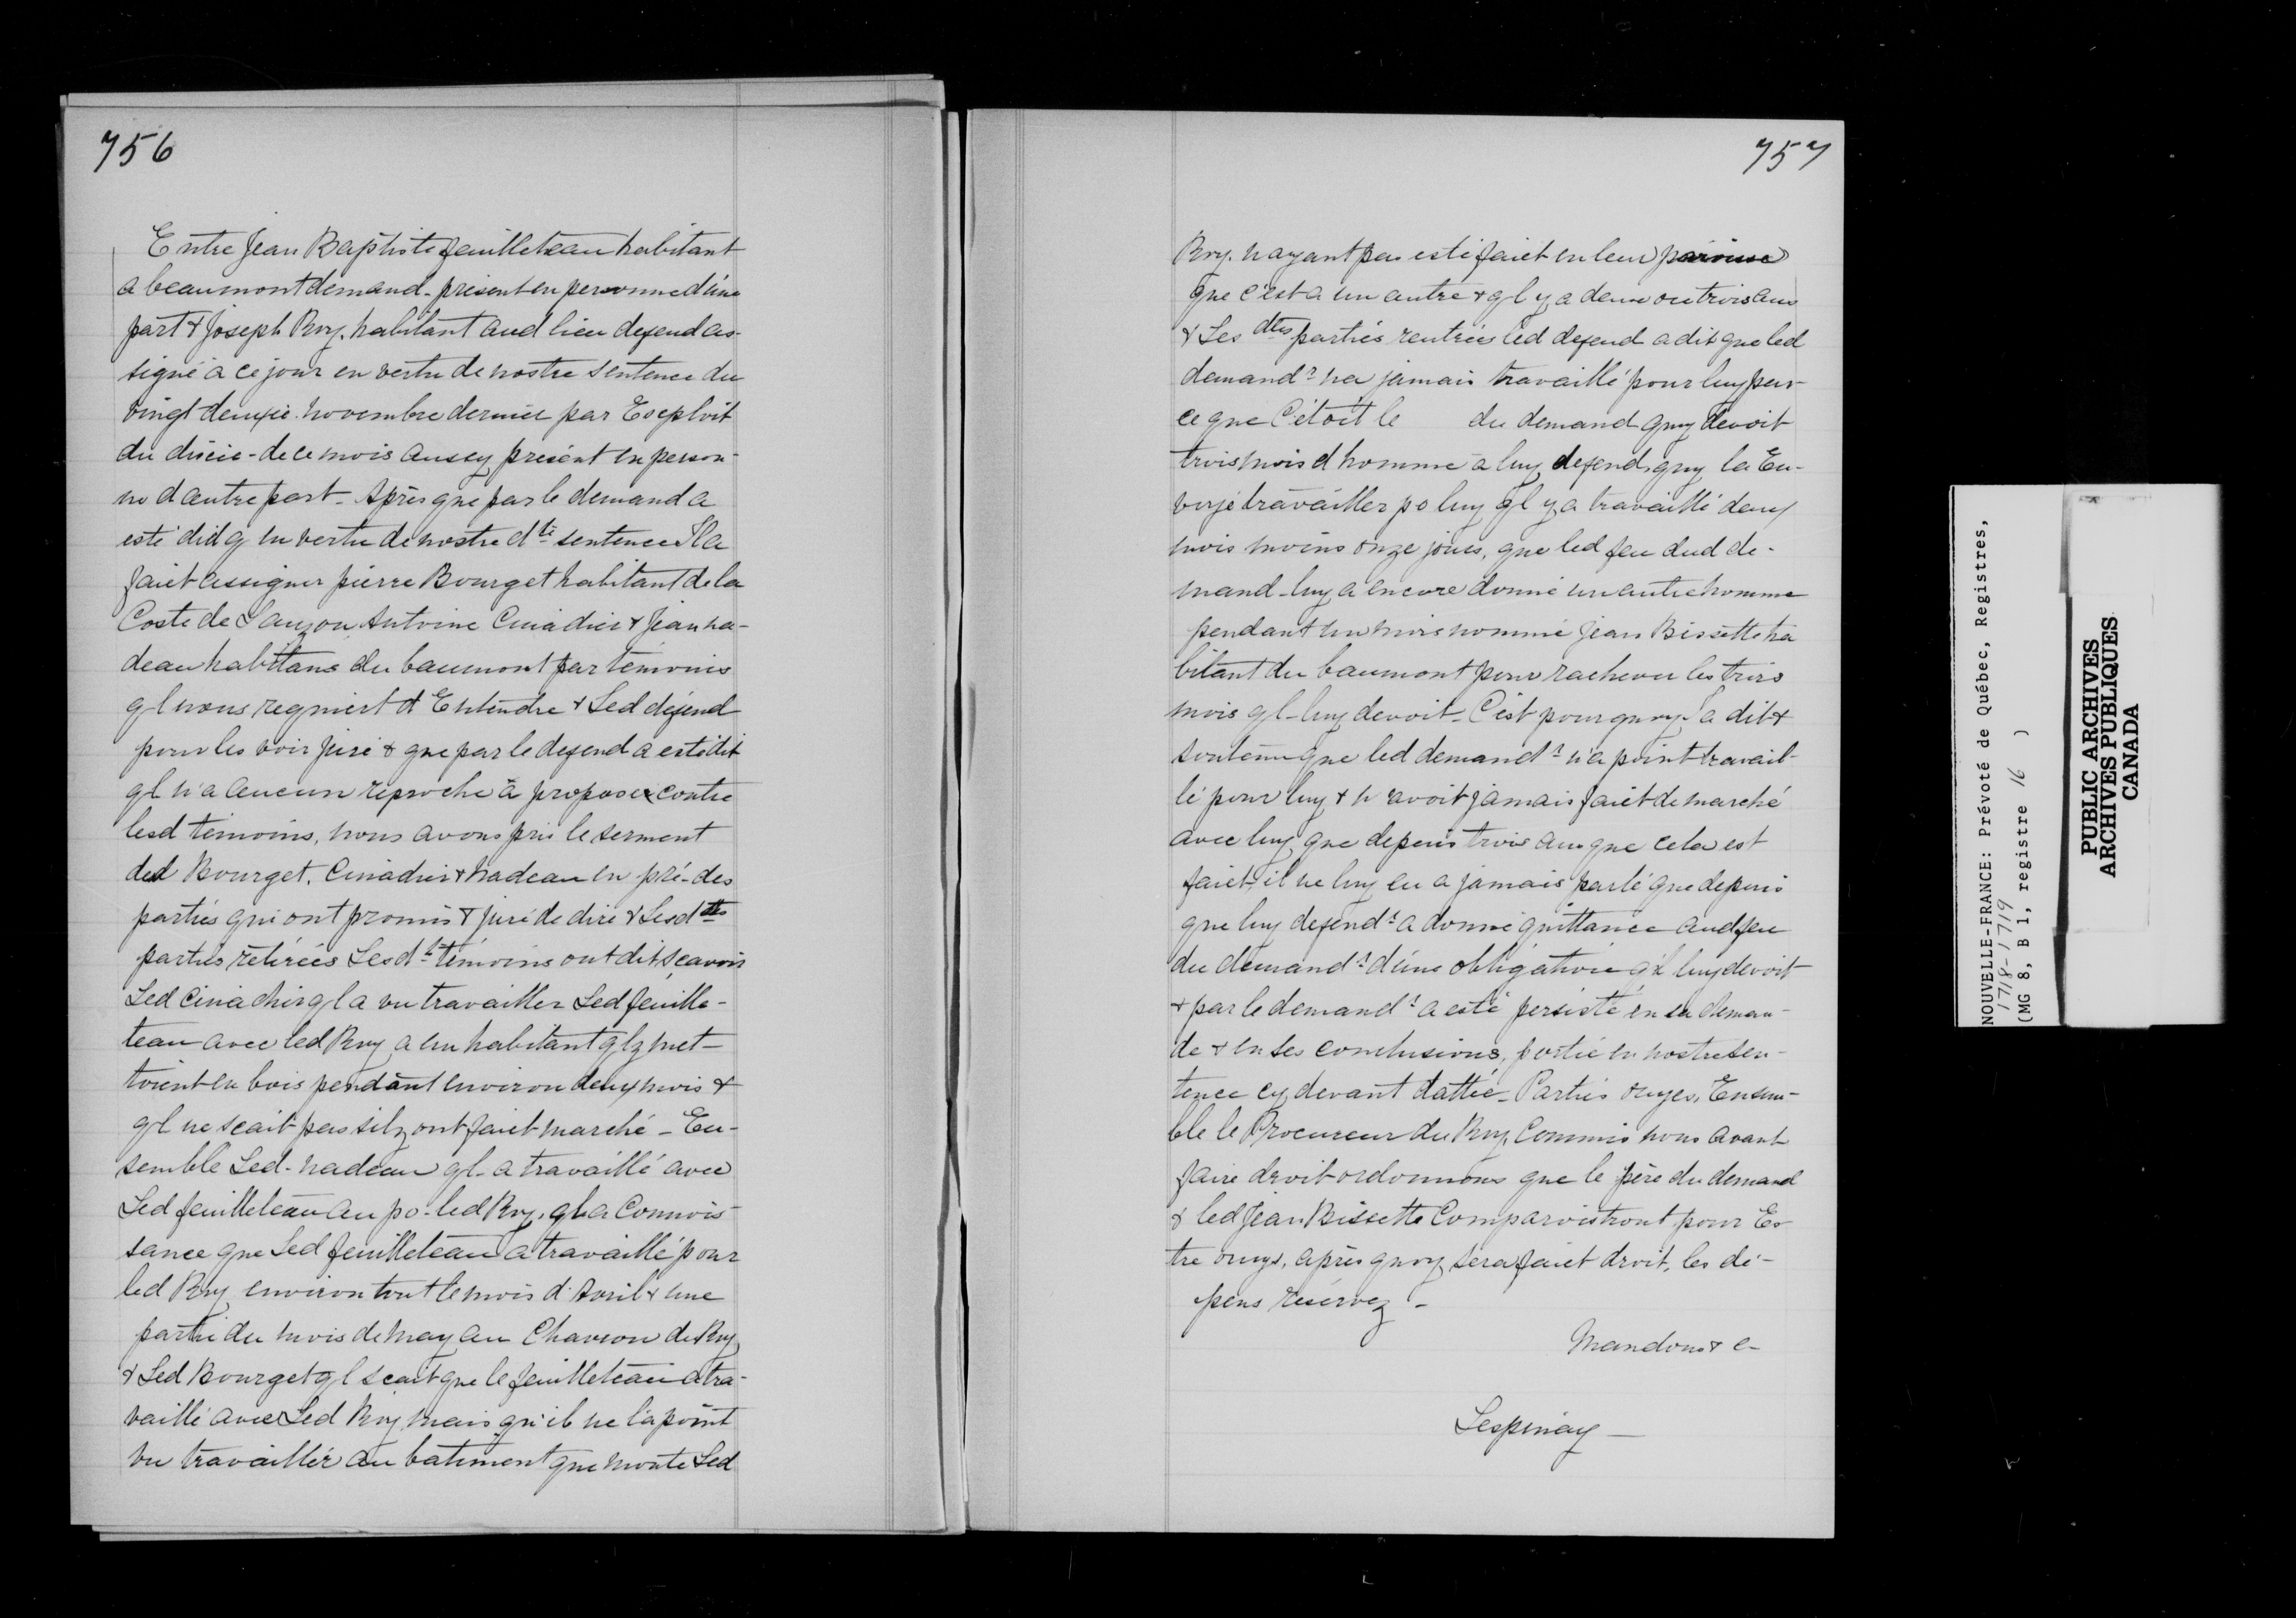 756
Entre Jean Baptiste feuilleteau habitant
a beaumont demand - présent en personne d'une
part & Joseph Roy, habitant aud lieu defend as-
signé à ce jour en vertu de nostre sentence du
vingt deuxie. novembre dernier par Exploit
du dixié - de ce mois aussy présent en person-
ne d'autre part - Après que par le demand a
esté dit q en vertu de nostre dte sentence Il a
faict assigner pierre Bourget habitant de la
Coste de Lauzon Antoine Cuiadier & Jean na-
deau habitans du beaumont par témoins
ql nous requiert d'Entendre & Led défend
pour les voir juré & que par le defend a esté dit
ql n'a aucun reproche à proposer contre
lesd témoins, nous avons pris le serment
ded Bourget, Cuiadier & nadeau en pré - des
parties qui ont promis & juré de dire & Lesdtes
parties retirées Lesdts témoins ont dit, sçavoir
Led ql a vu travailler Led feuille-
teau avec led Roy a un habitant qlz met-
toient en bois pendant environ deux mois &
ql ne scait pas silz ont faict marché - En-
semble Led - nadeau ql - a travaillé avec
Led feuilleteau au po - led Roy, ql a Connois-
sance que Led feuilleteau a travaillé pour
led Roy environ tout le mois d'Avril & une
partie du mois de may au de Roy
& Led Bourget ql scait que le feuilleteau a tra-
vaillé avec Led Roy mais qu'il ne l'a point
vu travailler au batiment que monte Led
757
Roy, n'ayant pas esté faict en leur paroisse
que c'est a un autre & ql y a deux ou trois ans
& Les dtes parties rentrées led defend a dit que led
demandr n'a jamais travaillé pour luy par-
ce que C'étoit le du demand quy devoit
trois mois d'homme à luy defend, quy la En-
voyé travailler po luy ql y a travaillé deux
mois moins onze jours, que led feu dud de-
mand - luy a encore donné un autre homme
pendant un mois nommé Jean Bissette ha
bitant du beaumont pour rachever les trois
mois ql - luy devoit - C'est pourquoy Ia dit &
soutenu que led demandr n'a point travail-
lé pour luy & n'avoit jamais faict de marché
avec luy que depuis trois ans que cela est
faict, il ne luy en a jamais parlé que depuis
que luy defendr a donné quittance aud feu
du demandr d'une obligation q'il luy devoit
& par le demandr a esté persisté en sa deman-
de & en ses conclusions, portié en nostre sen-
tence cy devant dattée - Parties ouyes, Ensem-
ble le Procureur du Roy Commis nous avant
faire droit ordonnons que le père du demand
& led Jean Bissette Comparoistront pour Es-
tre ouys, après quoy sera faict droit, les dé-
pens réservez -
Mandons & c -
Lespinay -
NOUVELLE-FRANCE: Prévoté de Québec, Registres,
1718-1719
(MG 8, B 1, registre 16 )
PUBLIC ARCHIVES
ARCHIVES PUBLIQUES
CANADA